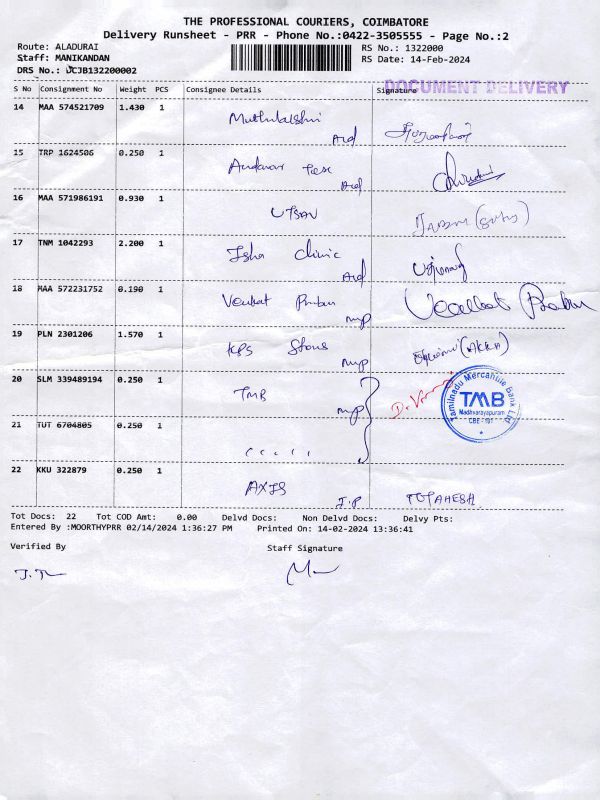 THE PROFESSIONAL COURIERS, COIMBATORE
Delivery Runsheet - PRR - Phone No.:0422-3505555 - Page No.:2
Route: ALADURAI RS No.: 1322000
Staff: MANIKANDAN RS Date: 14-Feb-2024
DRS No.: UCJB132200002
DOCUMENT DELIVERY
S No Consignment No Weight PCS Consignee Details Signature
14 MAA 574521709 1.430 1 Muthulakshmi
Ard
15 TRP 1624506 0.250 1
Ard
16 MAA 571986191 0.930 1 UTSAV
17 TNM 1042293 2.200 1 Isha Clinic
Ard
18 MAA 572231752 0.190 1 Venkat Prabu
mp
19 PLN 2301206 1.570 1 KPS
mp
20 SLM 339489194 0.250 1 TMB
mp
Tamilnadu Mercantile Bank Ltd
TMB
Madhvarayapuram
CBE - 101
21 TUT 6704805 0.250 1
22 KKU 322879 0.250 1 AXIS
I.P
Tot Docs: 22 Tot COD Amt: 0.00 Delvd Docs: Non Delvd Docs: Delvy Pts:
Entered By :MOORTHYPRR 02/14/2024 1:36:27 PM Printed On: 14-02-2024 13:36:41
Verified By Staff Signature